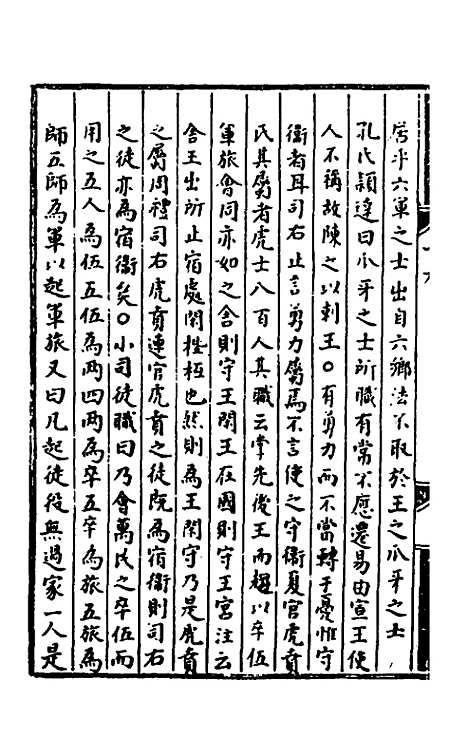 屬乎六軍之士出自六鄉法不取於王之爪牙之士
孔氏穎達曰爪牙之士所職有常不應遷易由宣王使
人不稱故陳之以刺王○有勇力而不當轉于憂惟守
衛者耳司右止言勇力屬焉不言使之守衛夏官虎賁
氏其屬者虎士八百人其職云掌先後王而趨以卒伍
軍旅會同亦如之舍則守王閑王在國則守王宮注云
舍王出所止宿處閑梐枑也然則為王閑守乃是虎賁
之屬周禮司右虎賁連官虎賁之徒既為宿衛則司右
之徒亦為宿衛矣○小司徒職曰乃會萬民之卒伍而
用之五人為伍五伍為兩四兩為卒五卒為旅五旅為
師五師為軍以起軍旅又曰凡起徒役無過家一人是